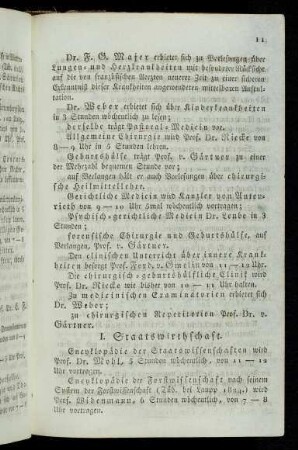 11
Dr. F. G. Majer erbietet sich zu Vorlesungen über
Lungen- und Herzkrankheiten mit besonderer Rücksicht
auf die von französischen Aerzten neuerer Zeit zu einer sicheren
Erkenntniß dieser Krankheiten angewendeten mittelbaren Auskul-
tation.
Dr. Weber erbietet sich über Kinderkrankheiten
in 3 Stunden wöchentlich zu lesen;
derselbe trägt Pastoral-Medicin vor.
Allgemeine Chirurgie wird Prof. Dr. Riecke von
8 — 9 Uhr in 5 Stunden lehren.
Geburtshülfe trägt Prof. v. Gärtner zu einer
der Mehrzahl bequemen Stunde vor;
auf Verlangen hält er auch Vorlesungen über chirurgi-
sche Heilmittellehre.
Gerichtliche Medicin wird Kanzler von Auten-
rieth von 9 — 10 Uhr 5mal wöchentlich vortragen;
Psychisch-gerichtliche Medicin Dr. Leube in 3
Stunden;
forensische Chirurgie und Geburtshülfe, auf
Verlangen, Prof. v. Gärtner.
Den clinischen Unterricht über innere Krank-
heiten besorgt Prof. Ferd. v. Gmelin von 11 — 12 Uhr.
Die chirurgisch-geburtshülfliche Clinik wird
Prof. Dr. Riecke wie bisher von 10 — 11 Uhr halten.
Zu medicinischen Examinatorien erbietet sich
Dr. Weber;
zu chirurgischen Repetitorien Prof. Dr. v.
Gärtner.
I. Staatswirthschaft.
Encyklopädie der Staatswissenschaften wird
Prof. Dr. Mohl, 5 Stunden wöchentlich, von 11 — 12
Uhr vortragen.
Encyklopädie der Forstwissenschaft nach seinem
System der Forstwissenschaft (Tüb. bei Laupp 1824.) wird
Prof. Widenmann, 6 Stunden wöchentlich, von 7 — 8
Uhr vortragen.